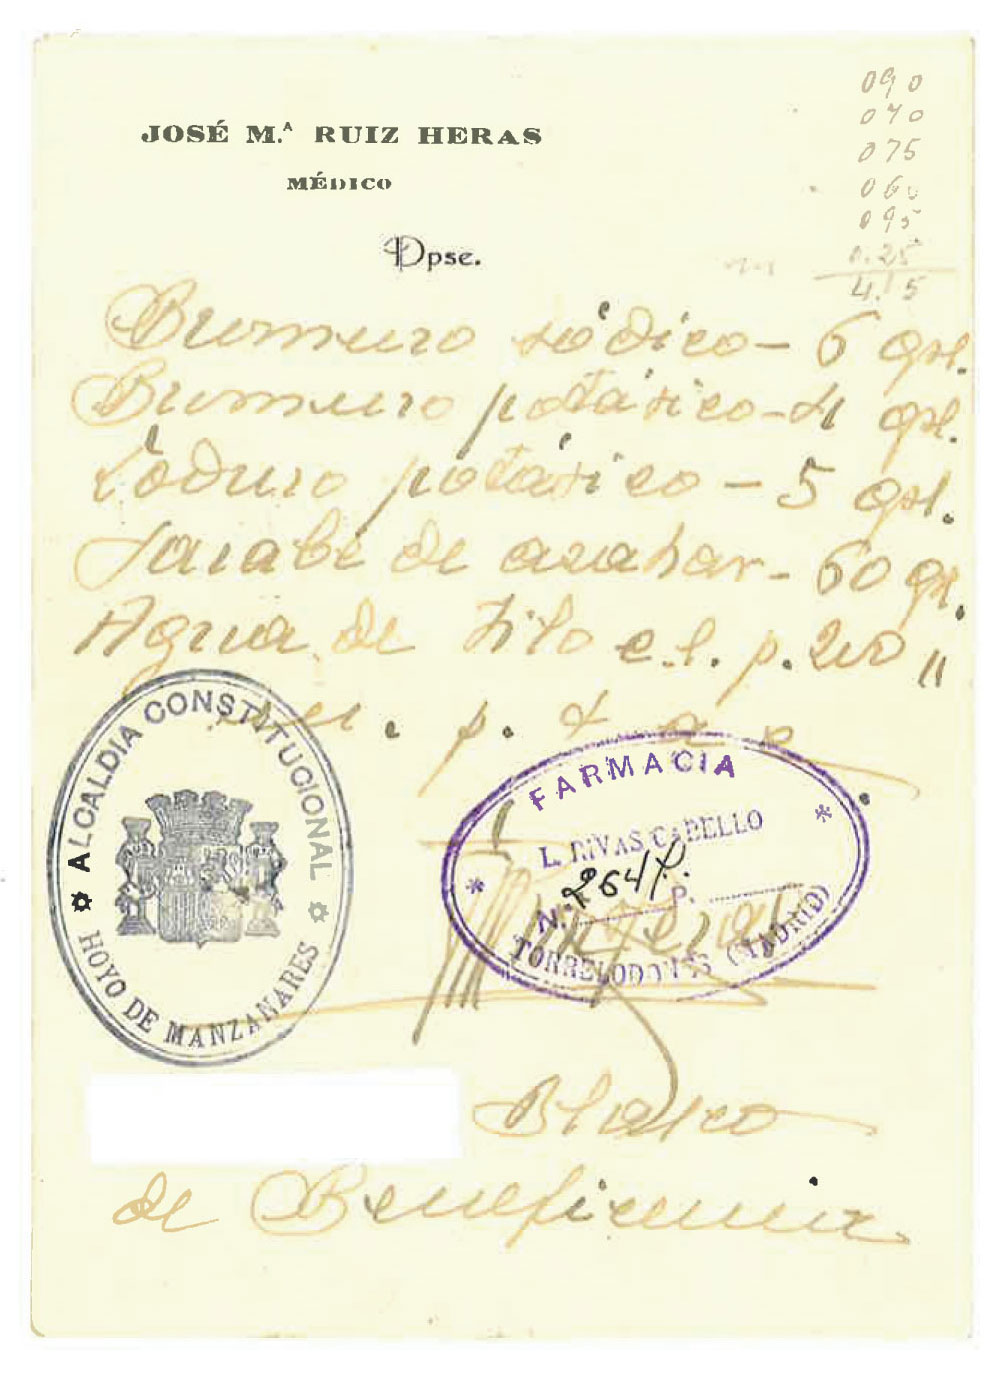 JOSÉ M.ª RUIZ HERAS
MÉDICO
090
070
075
060
095
0.25
4.15
Dpse.
Bromuro sódico - 6 grs.
Bromuro potásico - 4 grs.
Ioduro potásico - 5 grs.
Jarabe de azahar - 60 gr.
Agua de Tilo c.s. p. 200 "
p.
ALCALDIA CONSTITUCIONAL
HOYO DE MANZANARES
FARMACIA
L. RIVAS CABELLO
N.º 2647. P.
TORRELODONES (MADRID)
Blasco
de Beneficencia